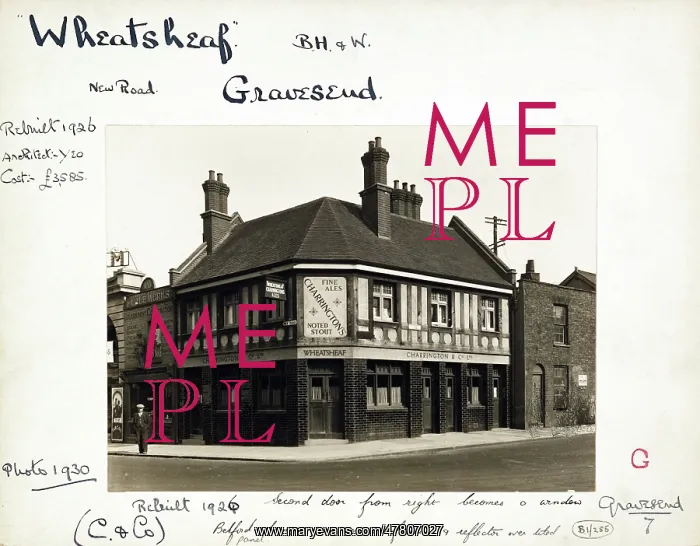 "Wheatsheaf" B.H. & W.
New Road. Gravesend.
Rebuilt 1926
Architect:- Yeo
Cost:- £3,585.
ME
PL
FINE
ALES
CHARRINGTON'S
NOTED
STOUT
WHEATSHEAF
CHARRINGTON & Co LTD
ME
PL
Photo 1930
G
Rebuilt 1926 Second door from right becomes a window
Gravesend
7
(C. & Co)
panel reflector
B1/255
www.maryevans.com/47807027